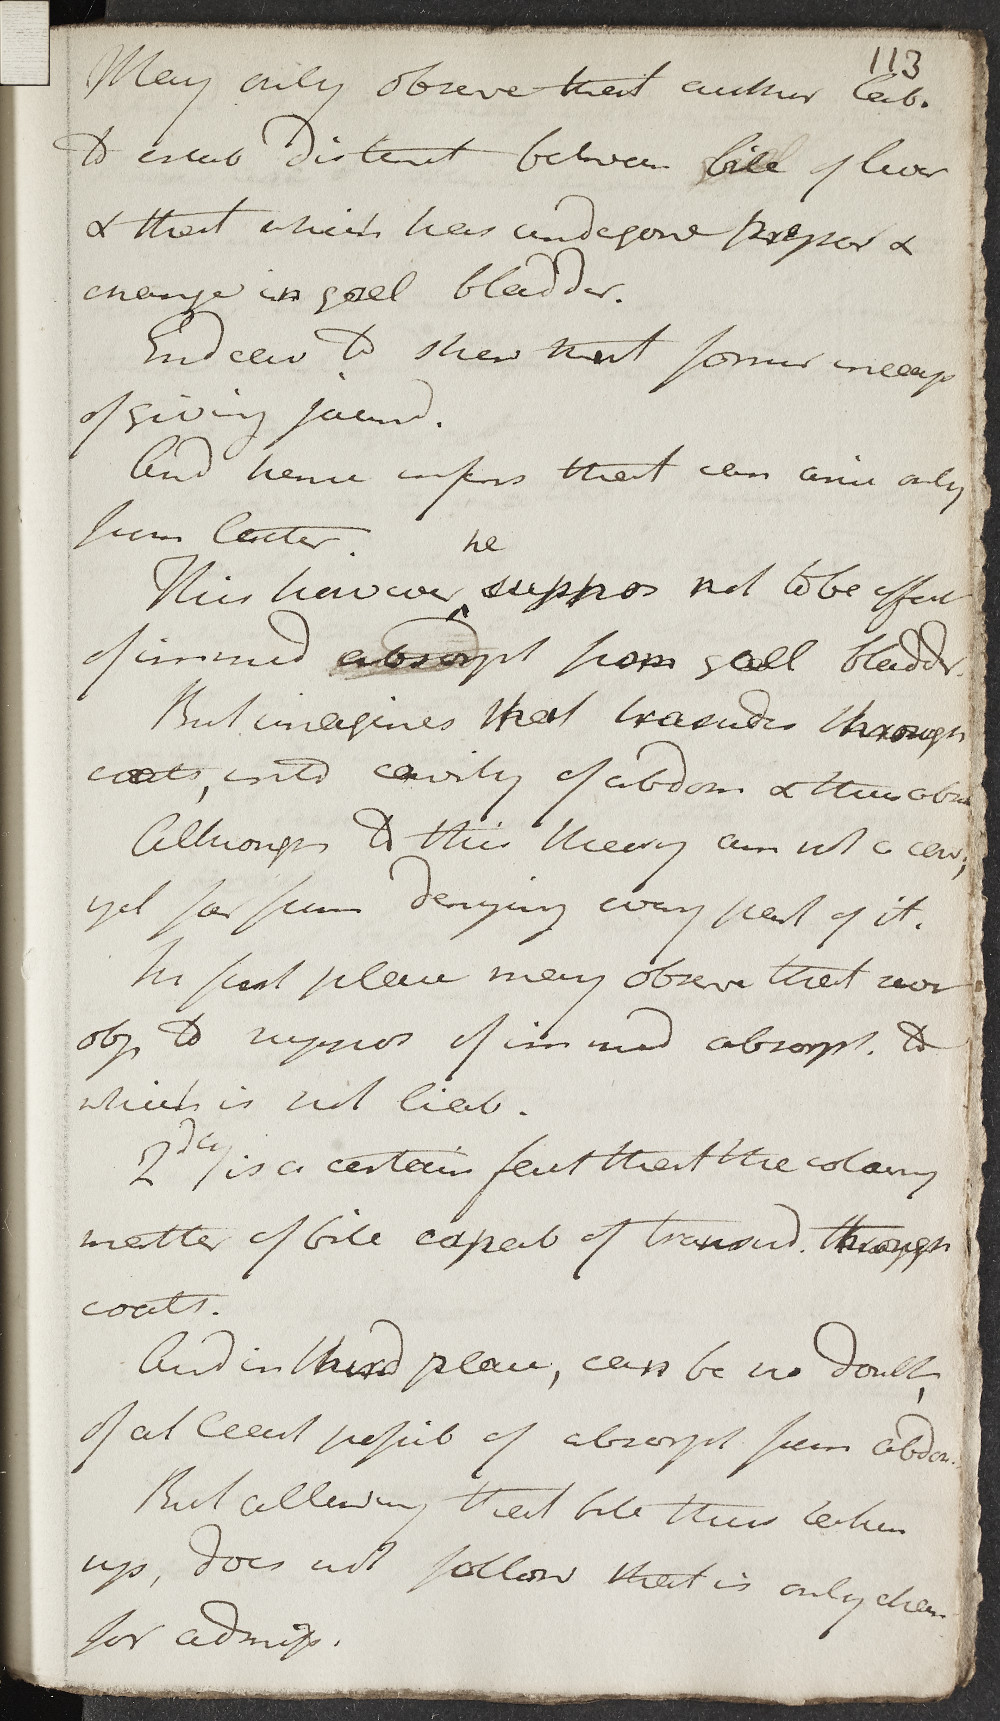 113
May only observe that author lab.
to estab distinct between bile of liver
& that which has undegone prepar &
change in gall bladder.
Endeav to shew that former incap
of giving jaund.
And hence infers that can arise only
from latter.
he
This however ^ suppos not to be effect
of immed absorpt from gall bladdr.
But imagines that trasudes through
coats, into cavity of abdom & thus abs
Although to this theory am not a conv,
yet far from denying every part of it.
In first place may observe that sever
obj to suppos of immed absorpt. to
which is not liab.
2dly is a certain fact that the colouring
matter of bile capab of transud. through
coats.
And in third place, can be no doubt,
of at least possib of absorpt from abdom.
But allowing that bile thus taken
up, does not follow that is only chan
for admiss.